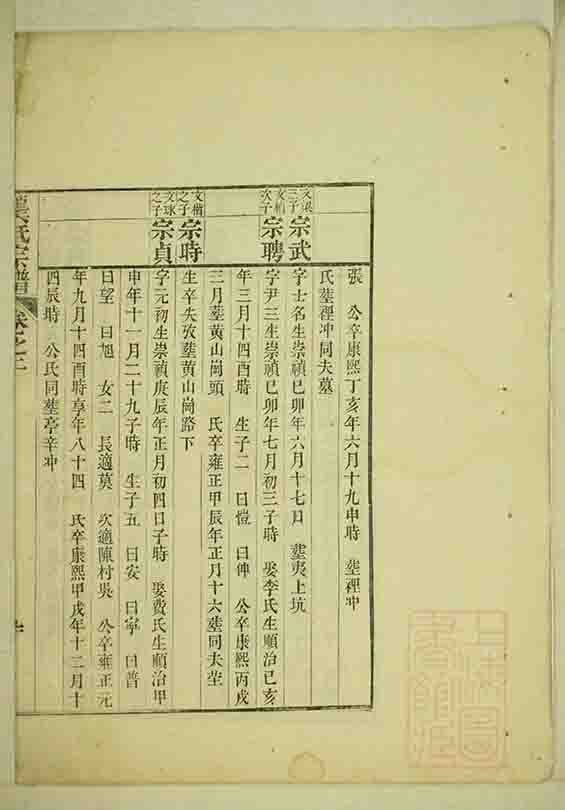 張 公卒康熙丁亥年六月十九申時 塟裡冲
氏塟裡冲同夫墓
三子 宗武
字士名生崇禎己卯年六月十七日 塟夷上坑
次子 宗聘
字尹三生崇禎己卯年七月初三子時 娶李氏生順治己亥
年三月十四酉時 生子二 曰愷 曰俾 公卒康熙丙戌
三月塟黄山崗頭 氏卒雍正甲辰年正月十六塟同夫坐
文楷之子 宗時
生卒失攷塟黄山崗路下
文球之子 宗貞
字元初生崇禎庚辰年正月初四日子時 娶費氏生順治甲
申年十一月二十九子時 生子五 曰安 曰寧 曰普
曰望 曰旭 女二 長適莫 次適陳村吳 公卒雍正元
年九月十四酉時享年八十四 氏卒康熙甲戌年十二月十
四辰時 公氏同塟亭辛冲
氏宗譜 卷之